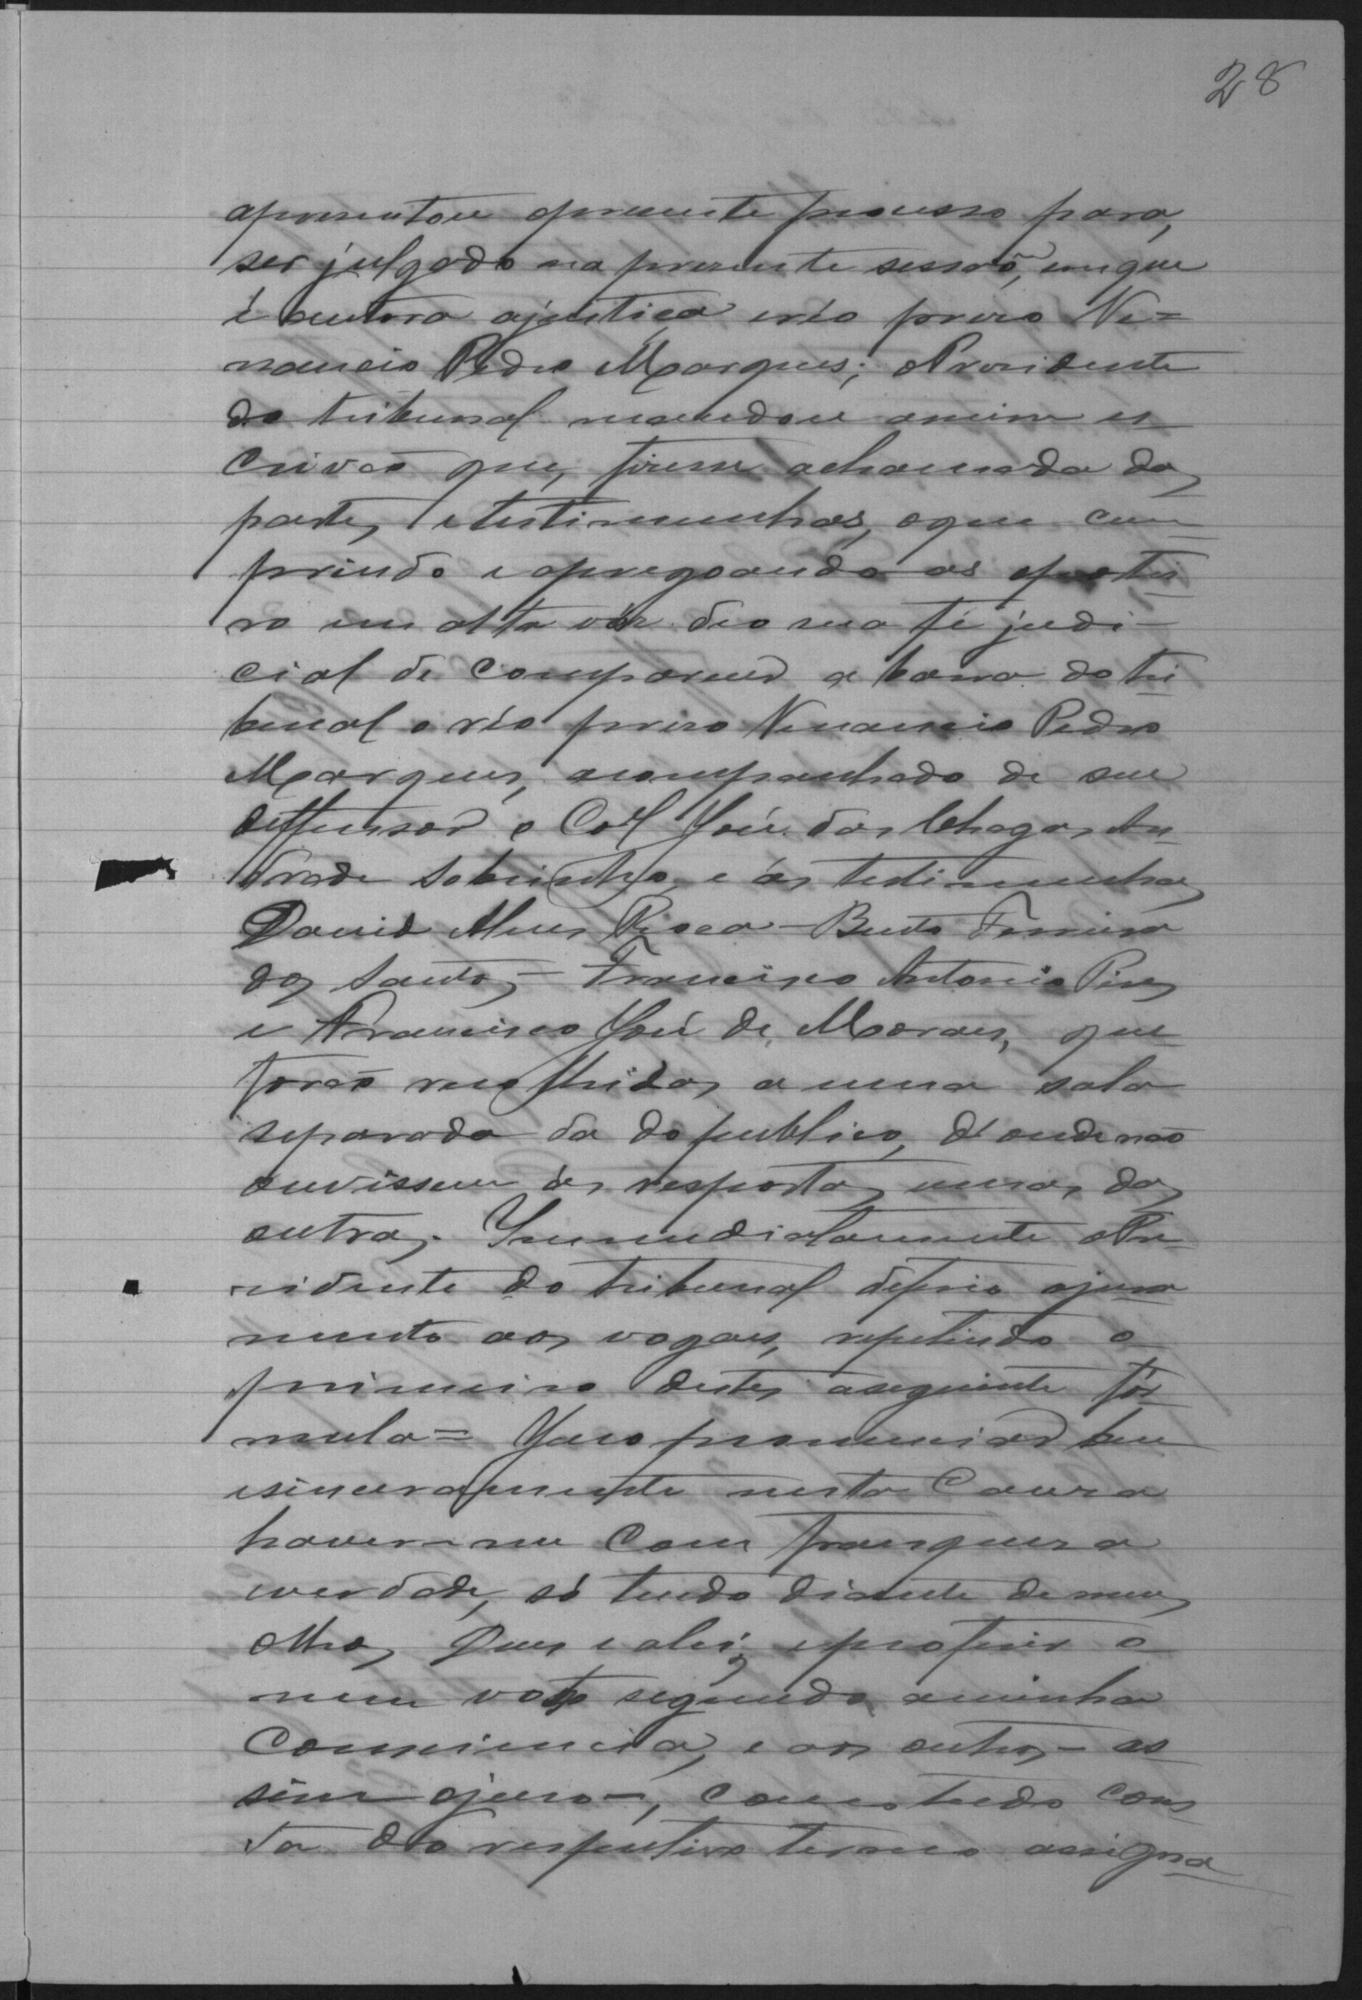 28
apresentou opresente processo para,
ser julgado na presente sessaõ, em que
é autora ajustiça eréo prezo Ve=
nancio Pedro Marques; oPrezidente
do tribunal mandou amim es
crivaõ que, fizesse achamada das
partes, e testimunhas, oque cum
prindo e apregoando-os oportei
ro em alta vóz deo sua fé judi-
cial de comparecer a barra do tri
bunal o réo prezo Venancio Pedro
Marques, acompanhado de seu
deffensor o Col José das Chagas An
drade Sobrinho, e ás testimunhas
David Alves Rosca - Bento Ferreira
dos Santos = Francisco Antonio Pires
e Francisco José de Moraes, que
foraõ recolhidas a uma sala
separada da do publico, d'onde naõ
ouvissem ás respostas umas das
outras. Immediatamente oPre
zidente do tribunal deferio ojura
mento aos vogaes, repetindo o
primeiro destes aseguinte fór
mula = Juro pronunciar bem
esinceramente nesta Causa
haver-me com franqueza
everdade, só tendo diante de meus
olhos, Deus e alei; eproferir o
meu voto segundo aminha
Consciencia, e os outros - as
sim ojuro -, como tudo cons
ta do respectivo termo assigna